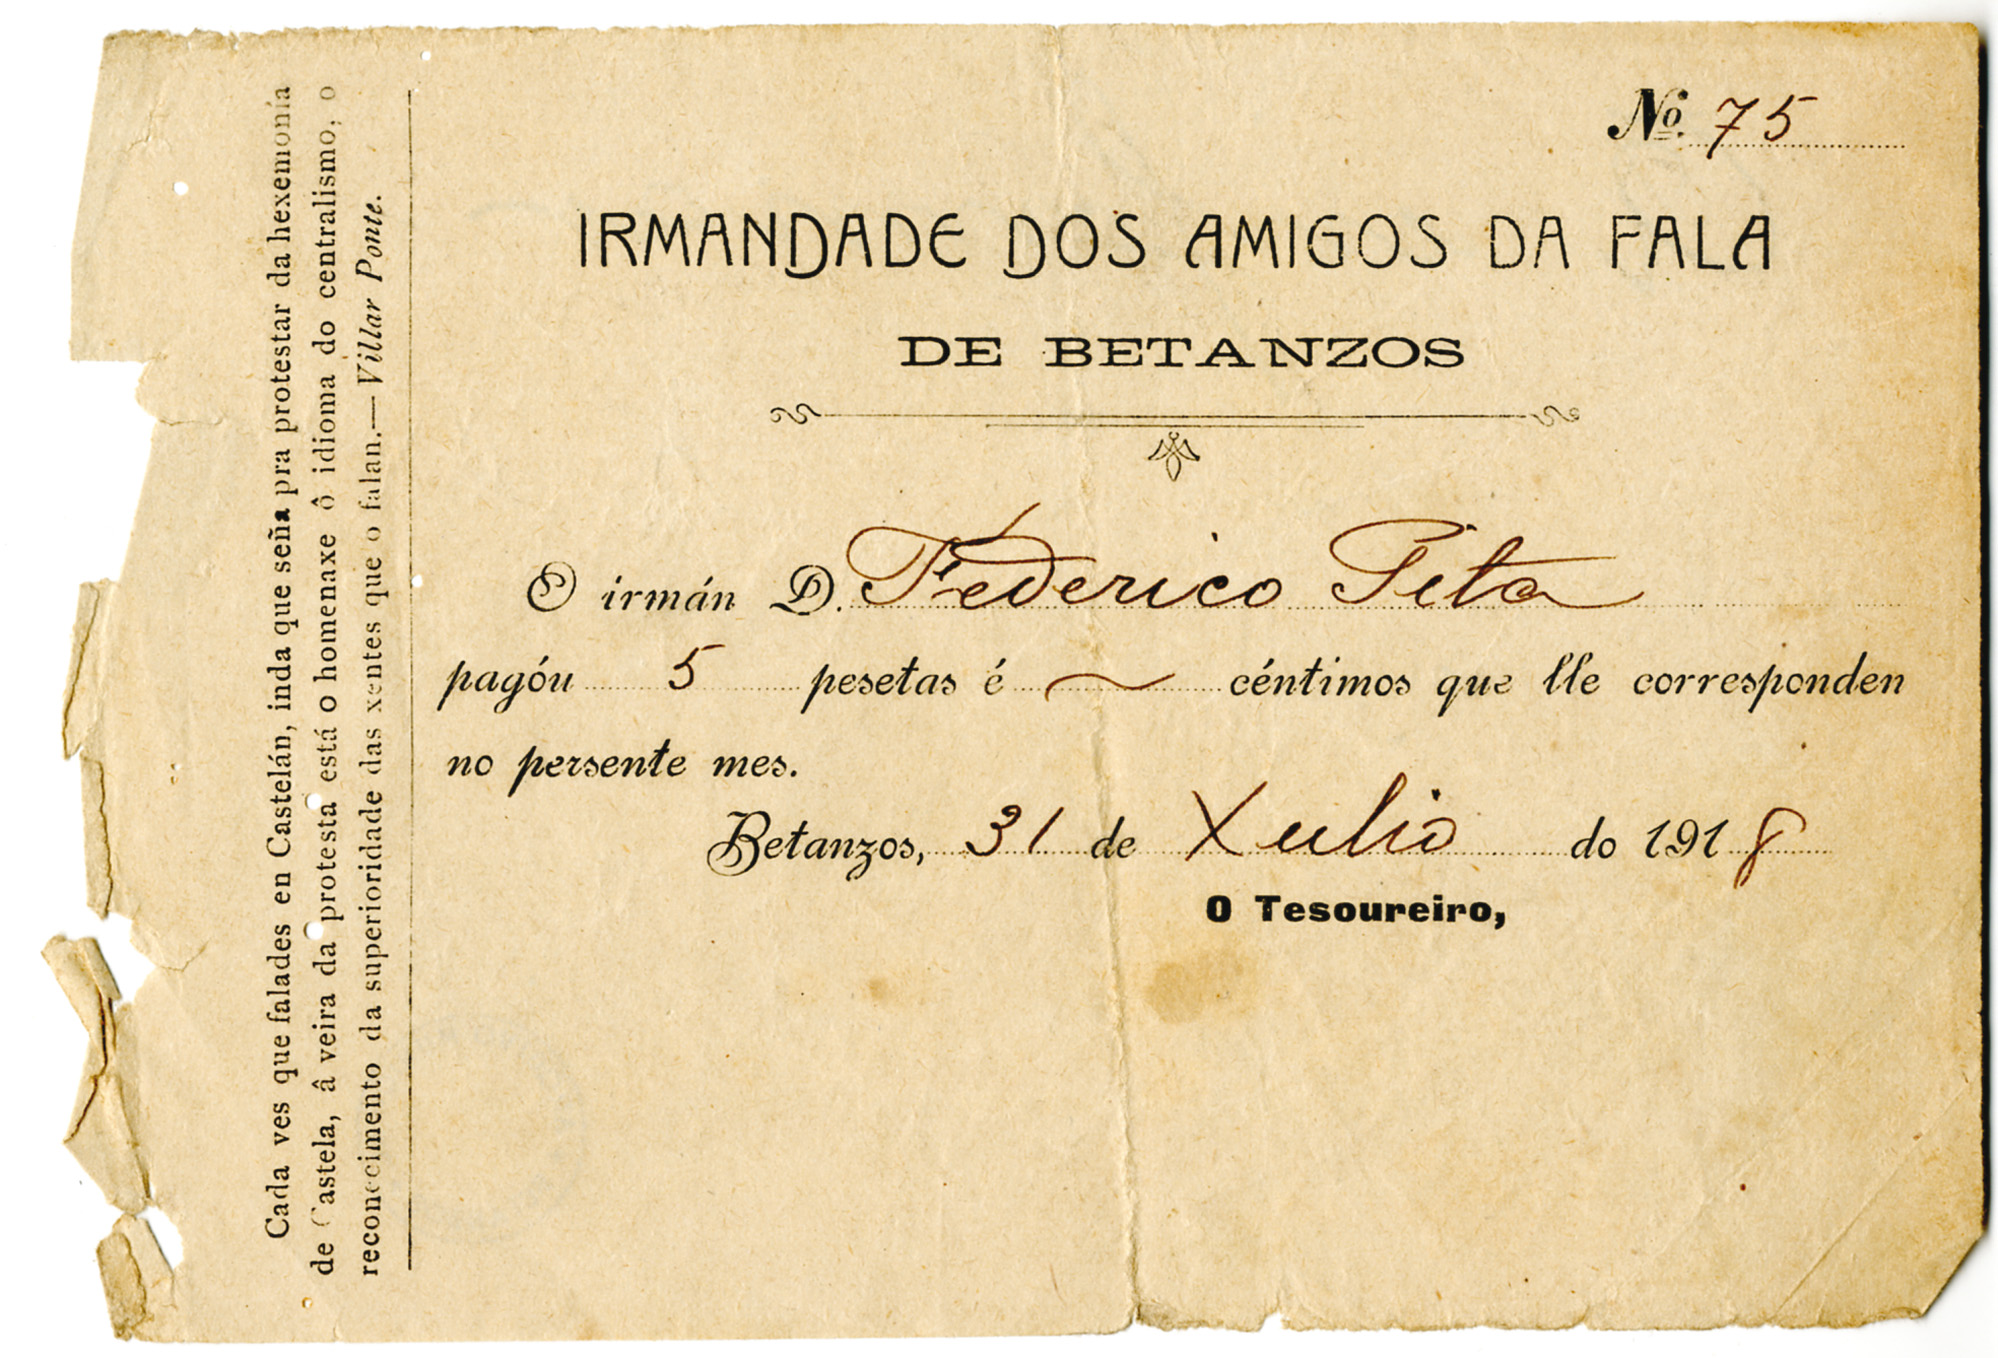 Cada ves que falades en Castelán, inda que seña pra protestar da hexemonía
de Castela, â veira da protesta está o homenaxe ô idioma do centralismo, o
reconecimento da superioridade das xentes que o falan.—Villar Ponte.
Nº. 75
IRMANDADE DOS AMIGOS DA FALA
DE BETANZOS
O irmán D. Federico Pita
pagóu 5 pesetas é ~ céntimos que lle corresponden
no persente mes.
Betanzos, 31 de Xulio do 1918
O Tesoureiro,